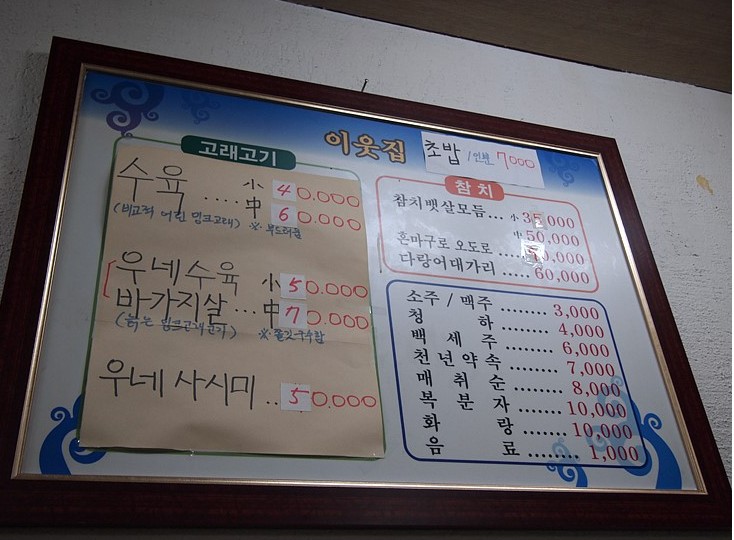 이웃집
초밥 1인분 7000
고래고기
수육 .... 小 40.000
中 60.000
(비교적 어린 밍크고래) ※ 부드러움
우네수육 小 50.000
바가지살 ... 中 70.000
(늙은 밍크고래고기) ※ 쫄깃쫄깃함
우네 사시미 .. 50.000
참치
참치뱃살모듬... 小 35,000
中 50,000
혼마구로 오도로 ......
다랑어대가리 ...... 60,000
소주 / 맥주 ........ 3,000
청 하 ........ 4,000
백 세 주 ........ 6,000
천 년 약 속 ........ 7,000
매 취 순 ........ 8,000
복 분 자 ........ 10,000
화 랑 ........ 10,000
음 료 ........ 1,000